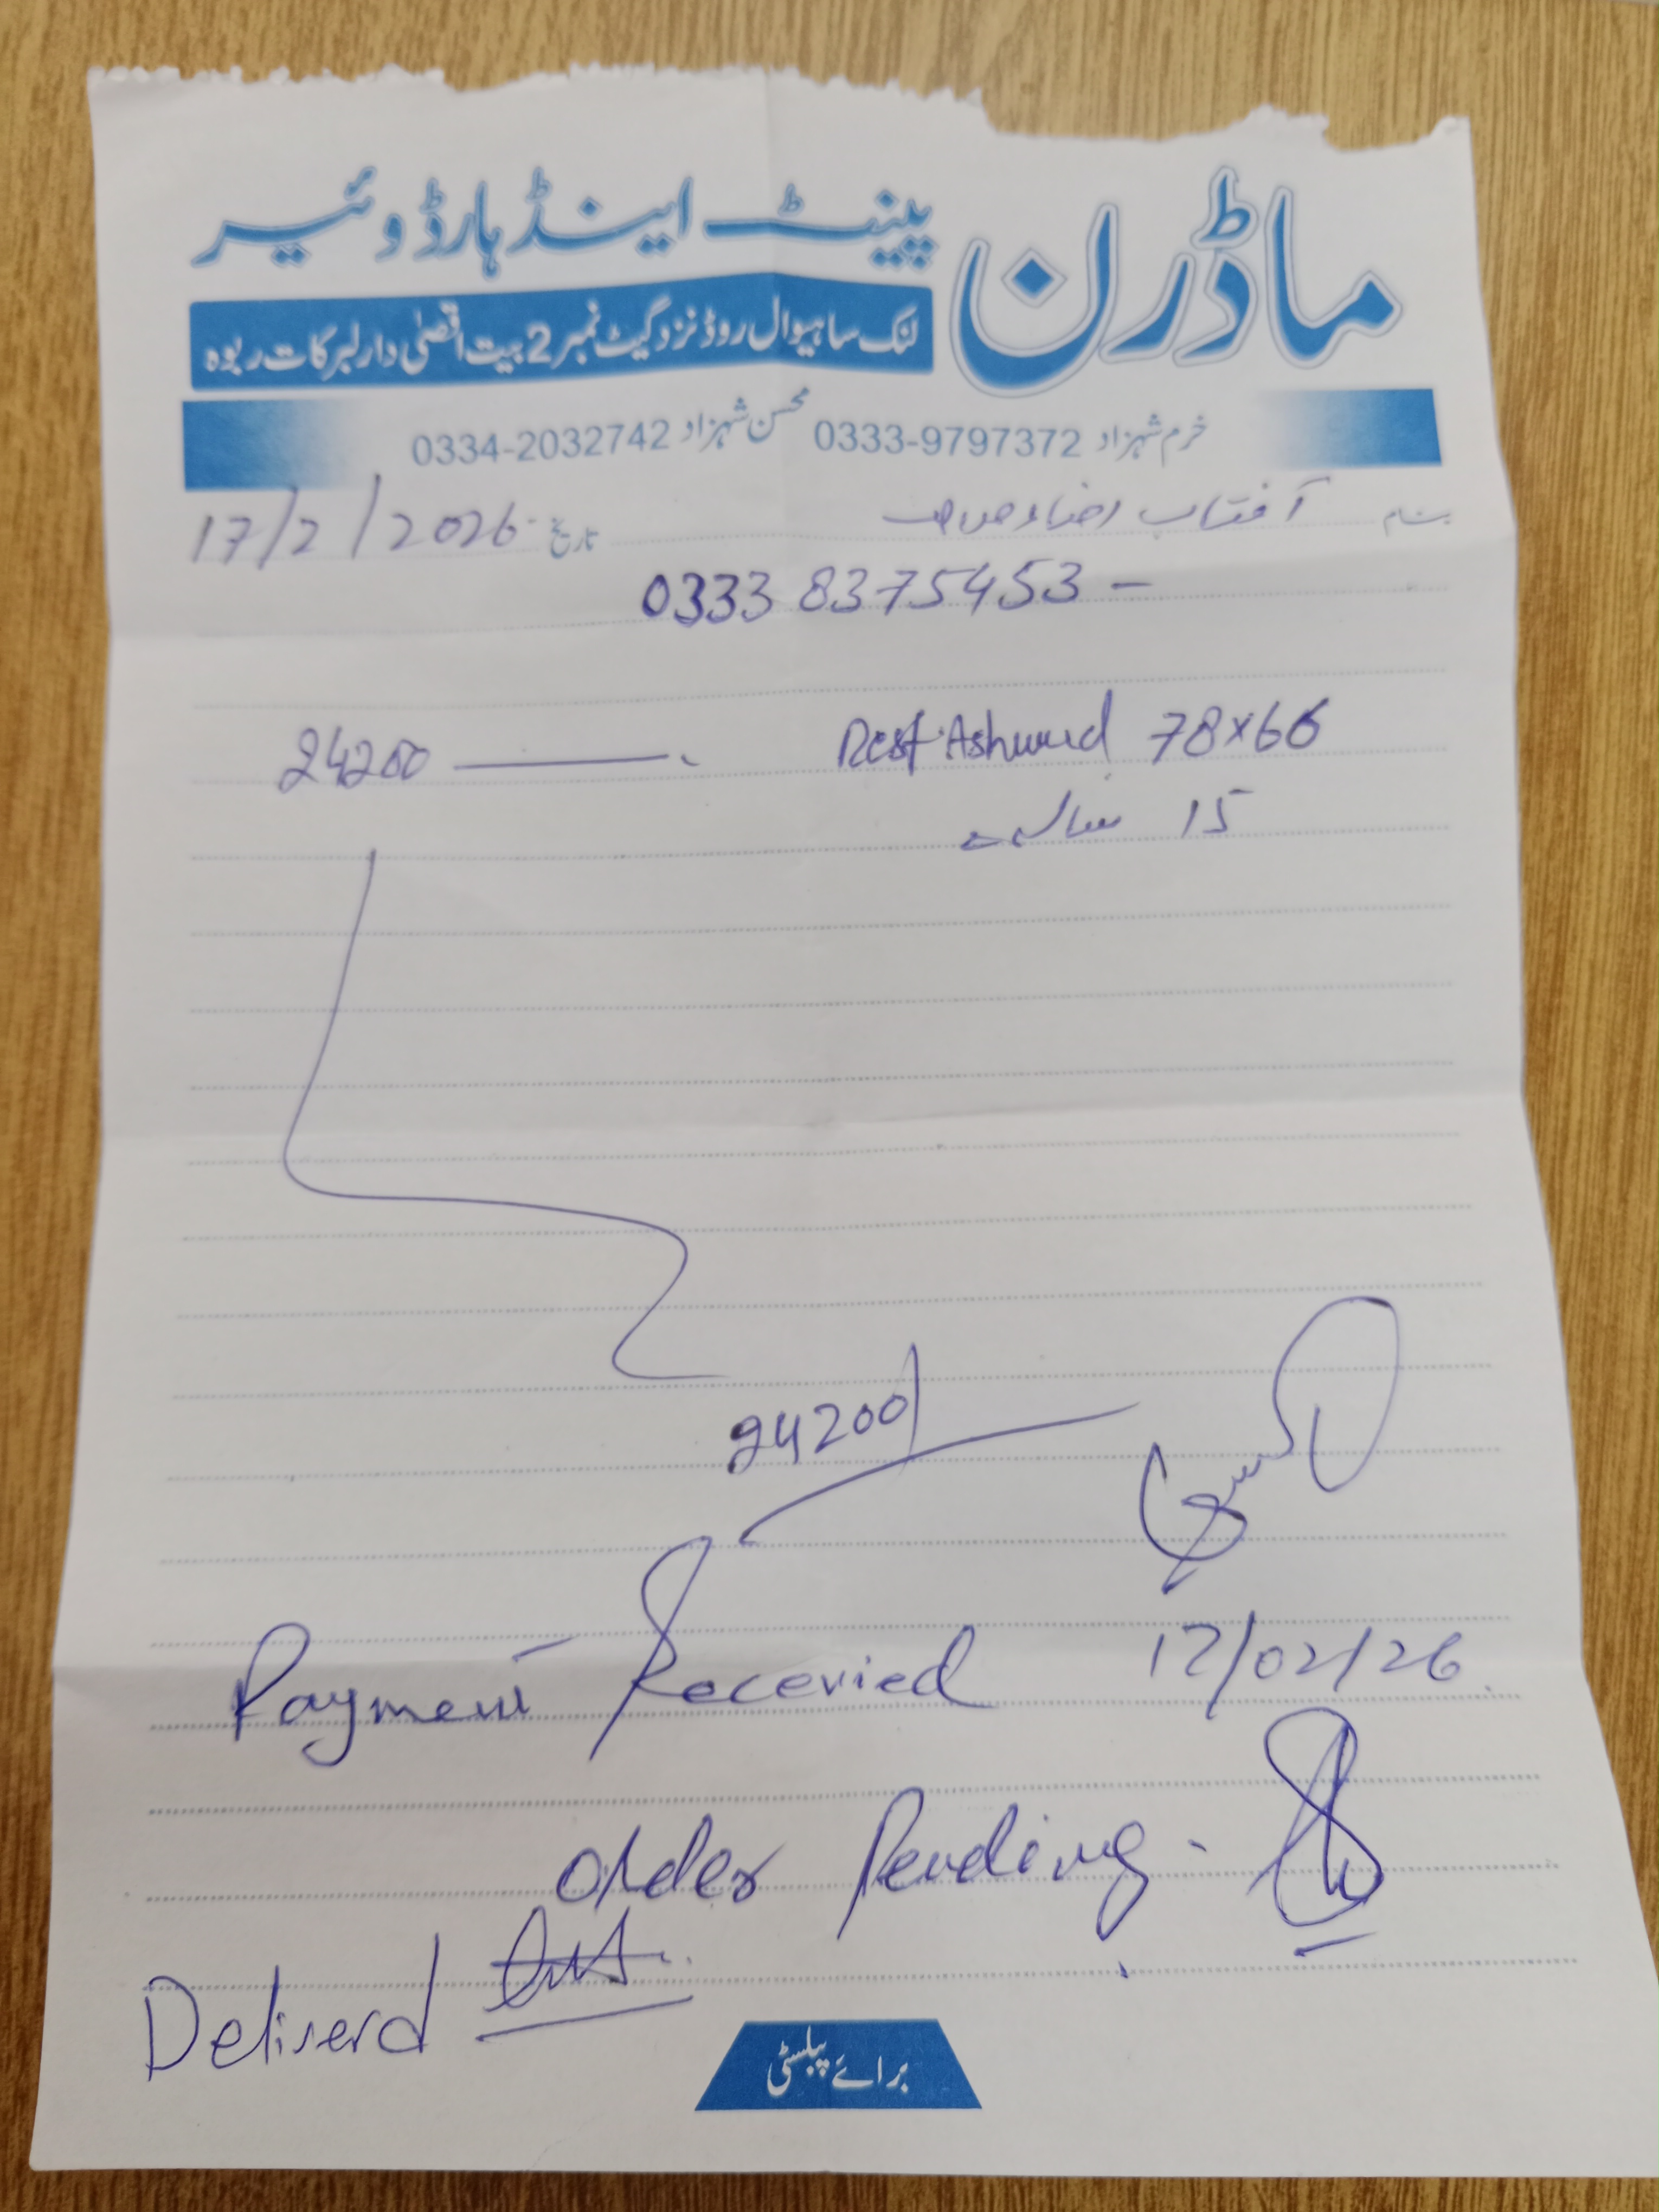 ماڈرن پینٹ اینڈ ہارڈوئیر
لنک ساہیوال روڈ نزد گیٹ نمبر 2 بیت اقصیٰ دارلبرکات ربوہ
خرم شہزاد 0333-9797372 محسن شہزاد 0334-2032742
بنام آفتاب احمد صاحب تاریخ 17/2/2026
0333 8375453 -
Rest 78x66 24200
15 سالہ
24200
Payment Recevied 17/02/26
order Pending.
Deliverd
برائے پبلسٹی